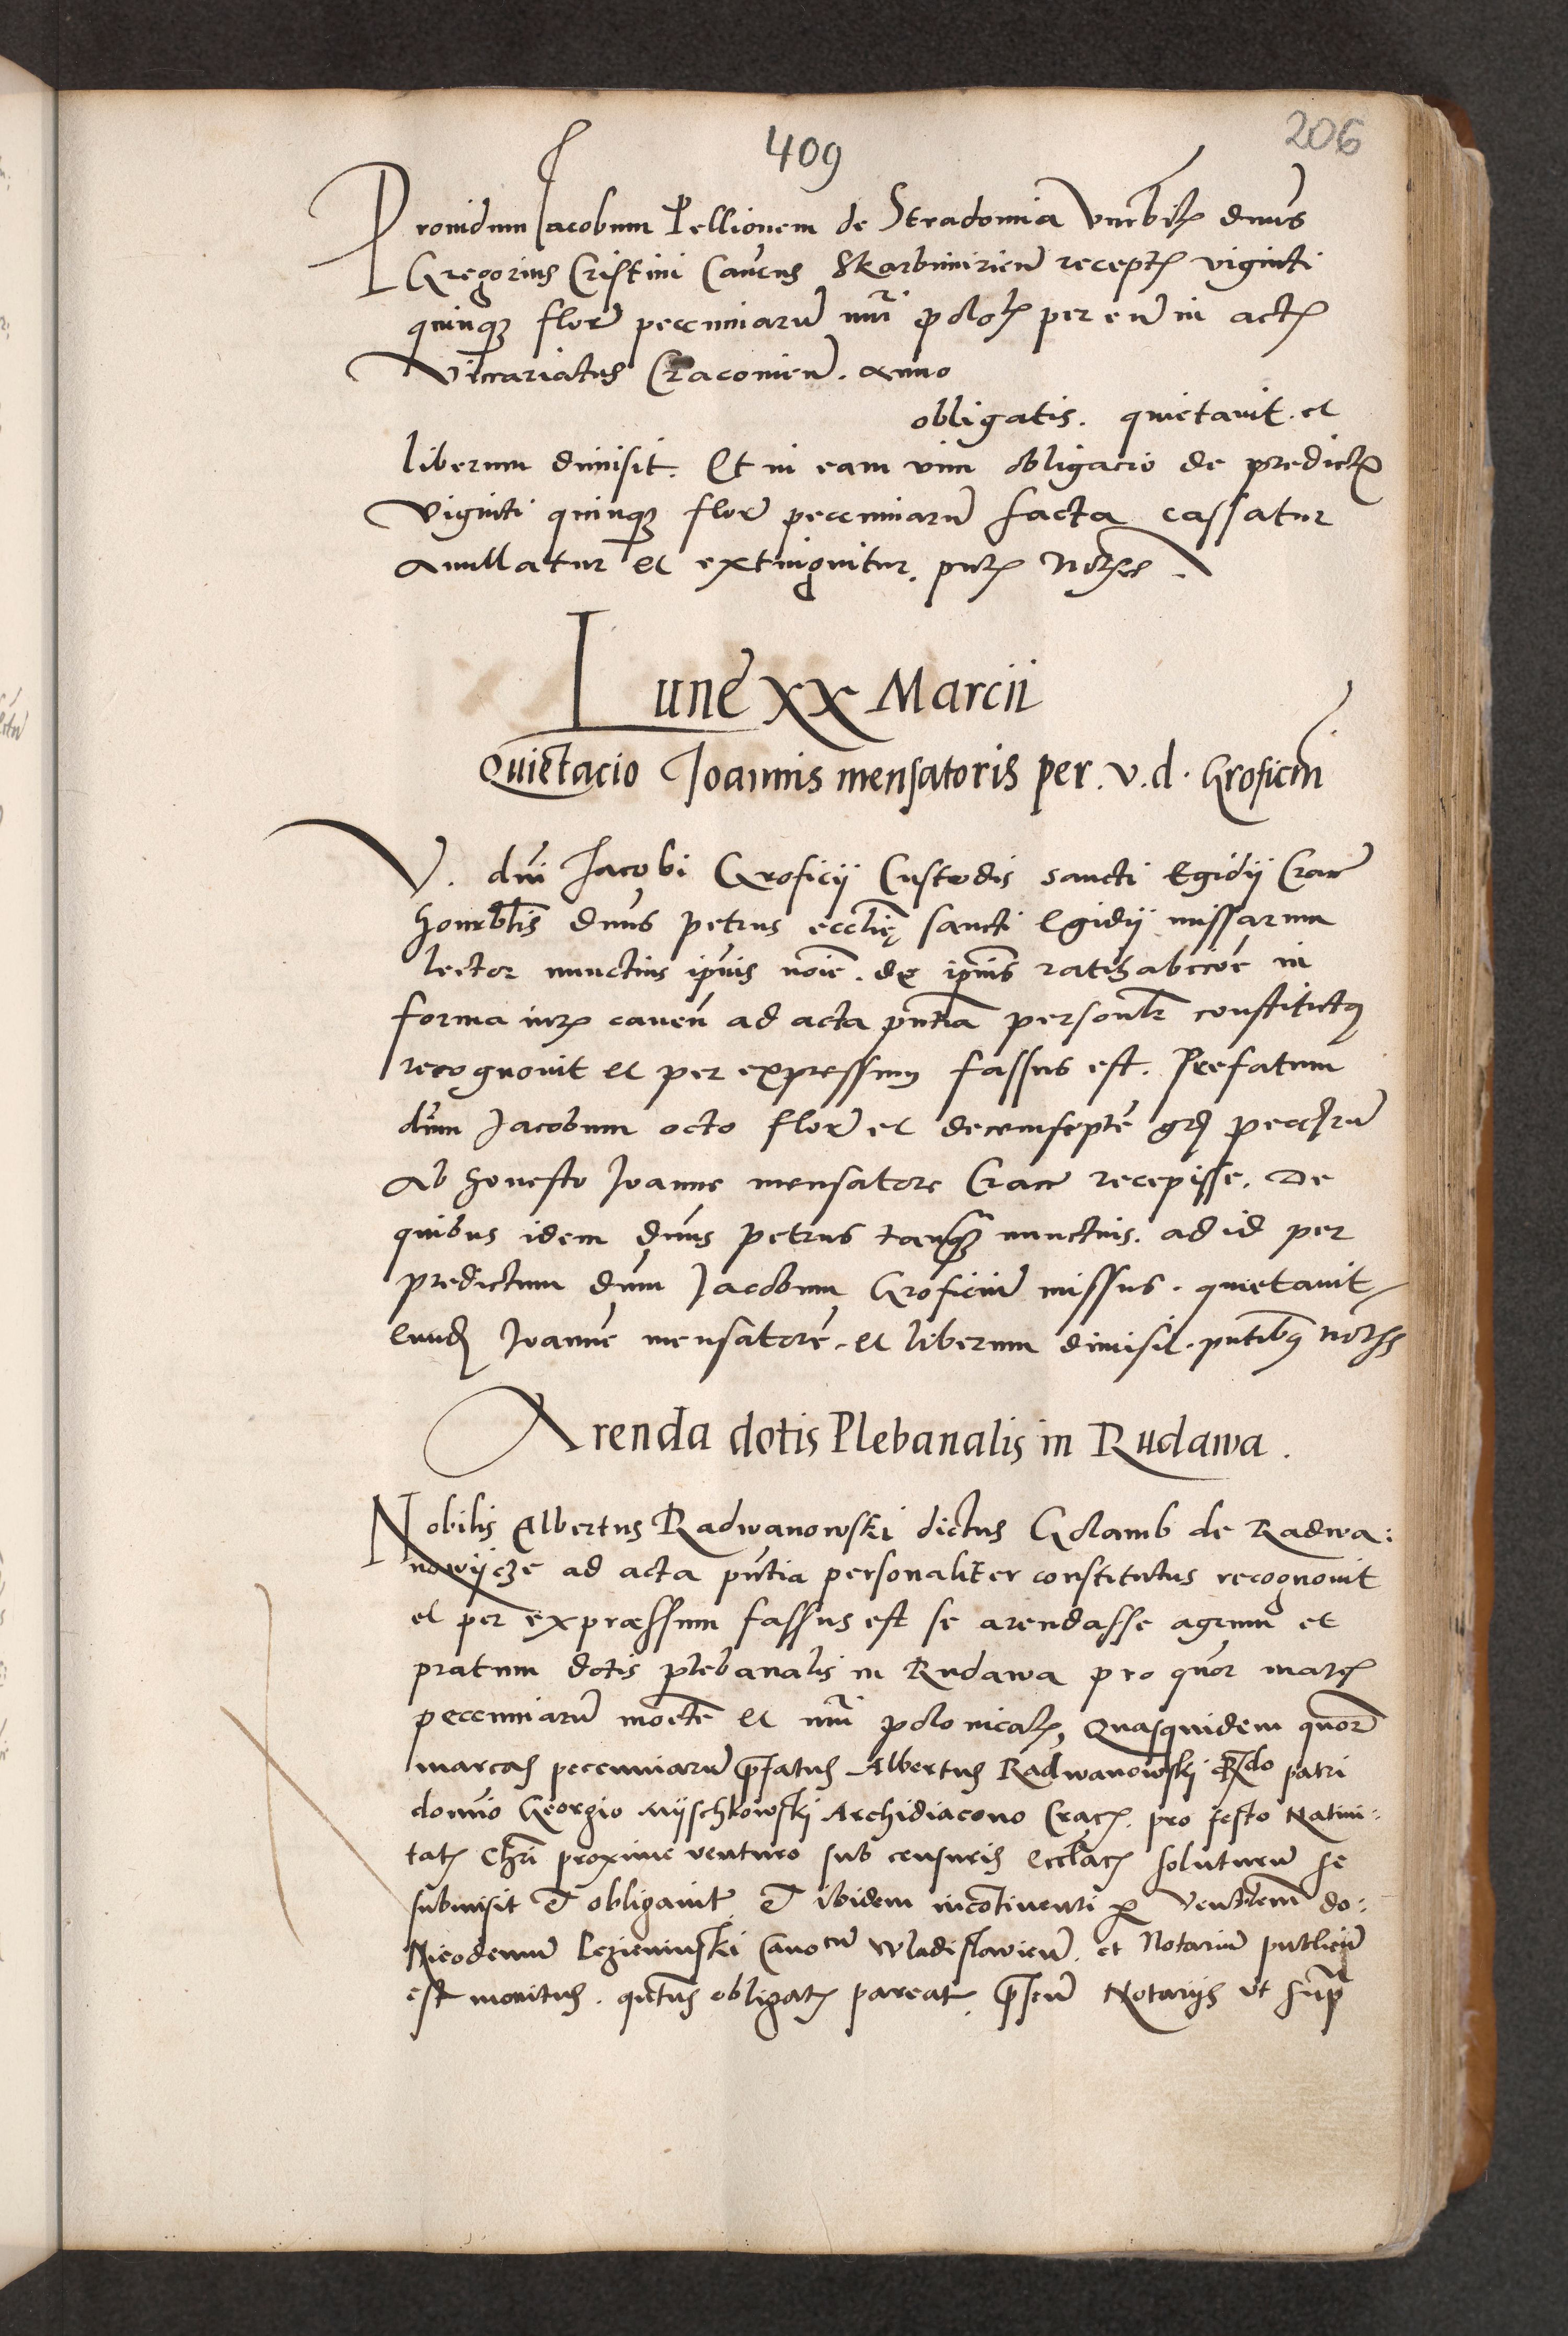 409
206
Providum Jacobum Pellionem de Stradomia Venrbilꝭ dnus
Gregorius Cristini Canrus Skarbimirien̄ receptꝭ viginti
quinqꝫ florꝭ peccuniarū nūri polo:lꝭ per eū in actꝭ
Vicariatus Cracovien̄. anno
obligatis. quietavit. et
liberum dimisit. Et in eam vim obligacio de predictꝭ
viginti quinqꝫ florꝭ peccuniarū facta cassatur
Anullatur et extinguitur. pntꝭ Notꝭ.
Lune XX Marcii
Quietacio Joannis mensatoris per. v. d. Groficiū
V. dni Jacobi Groficij Custodis sancti Egidij Crac̄
honrblis dnus petrus ecclię sancti Egidij missarum
lector nunctius ipius noīe. de ipius ratihabicōe in
forma iurꝭ caveñ ad acta pntia personlr constitutꝰ
recognovit et per expressum fassus est. Prefatum
dnum Jacobum octo florꝭ et decemseptē grꝭ peccꝭrū
Ab honesto Joanne mensatore Crac̄ recepisse. De
quibus idem dnus petrus tanqꝫ nunctius. ad id per
predictum dnm Jacobum Groficiū missus. quietavit
eundꝭ Joannē mensatorē. et liberum dimisit. pntibꝰ notꝭ
Arenda dotis Plebanalis in Rudawa.
Nobilis Albertus Radwanowski dictus Golamb de Radwa:
nowijcze ad acta pntia personaliter constitutus recognovit
et per expræssum fassus est se arendasse agrum et
pratum dotis plebanalis in Rudawa pro quōr marcꝭ
peccuniarū moētē et nūri polonicalꝭ, Quasquidem quōr
marcas peccuniarū p̄fatus Albertus Radwanowski Rndo patri
domīo Georgio Mijschkowski Archidiacono Cracꝭ. pro festo Nativi:
tatꝭ Chri proxime venturo sub censuris ecclācꝭ soluturū se
submisit et obligavit. et ibidem incōtinenti p venrblem do:
Nicodemum Lezieninski Canocū Wladislavien̄. et Notariū publicū
est monitus. qtenus obligatꝭ pareat. p̄sen̄ Notarijs ut supra